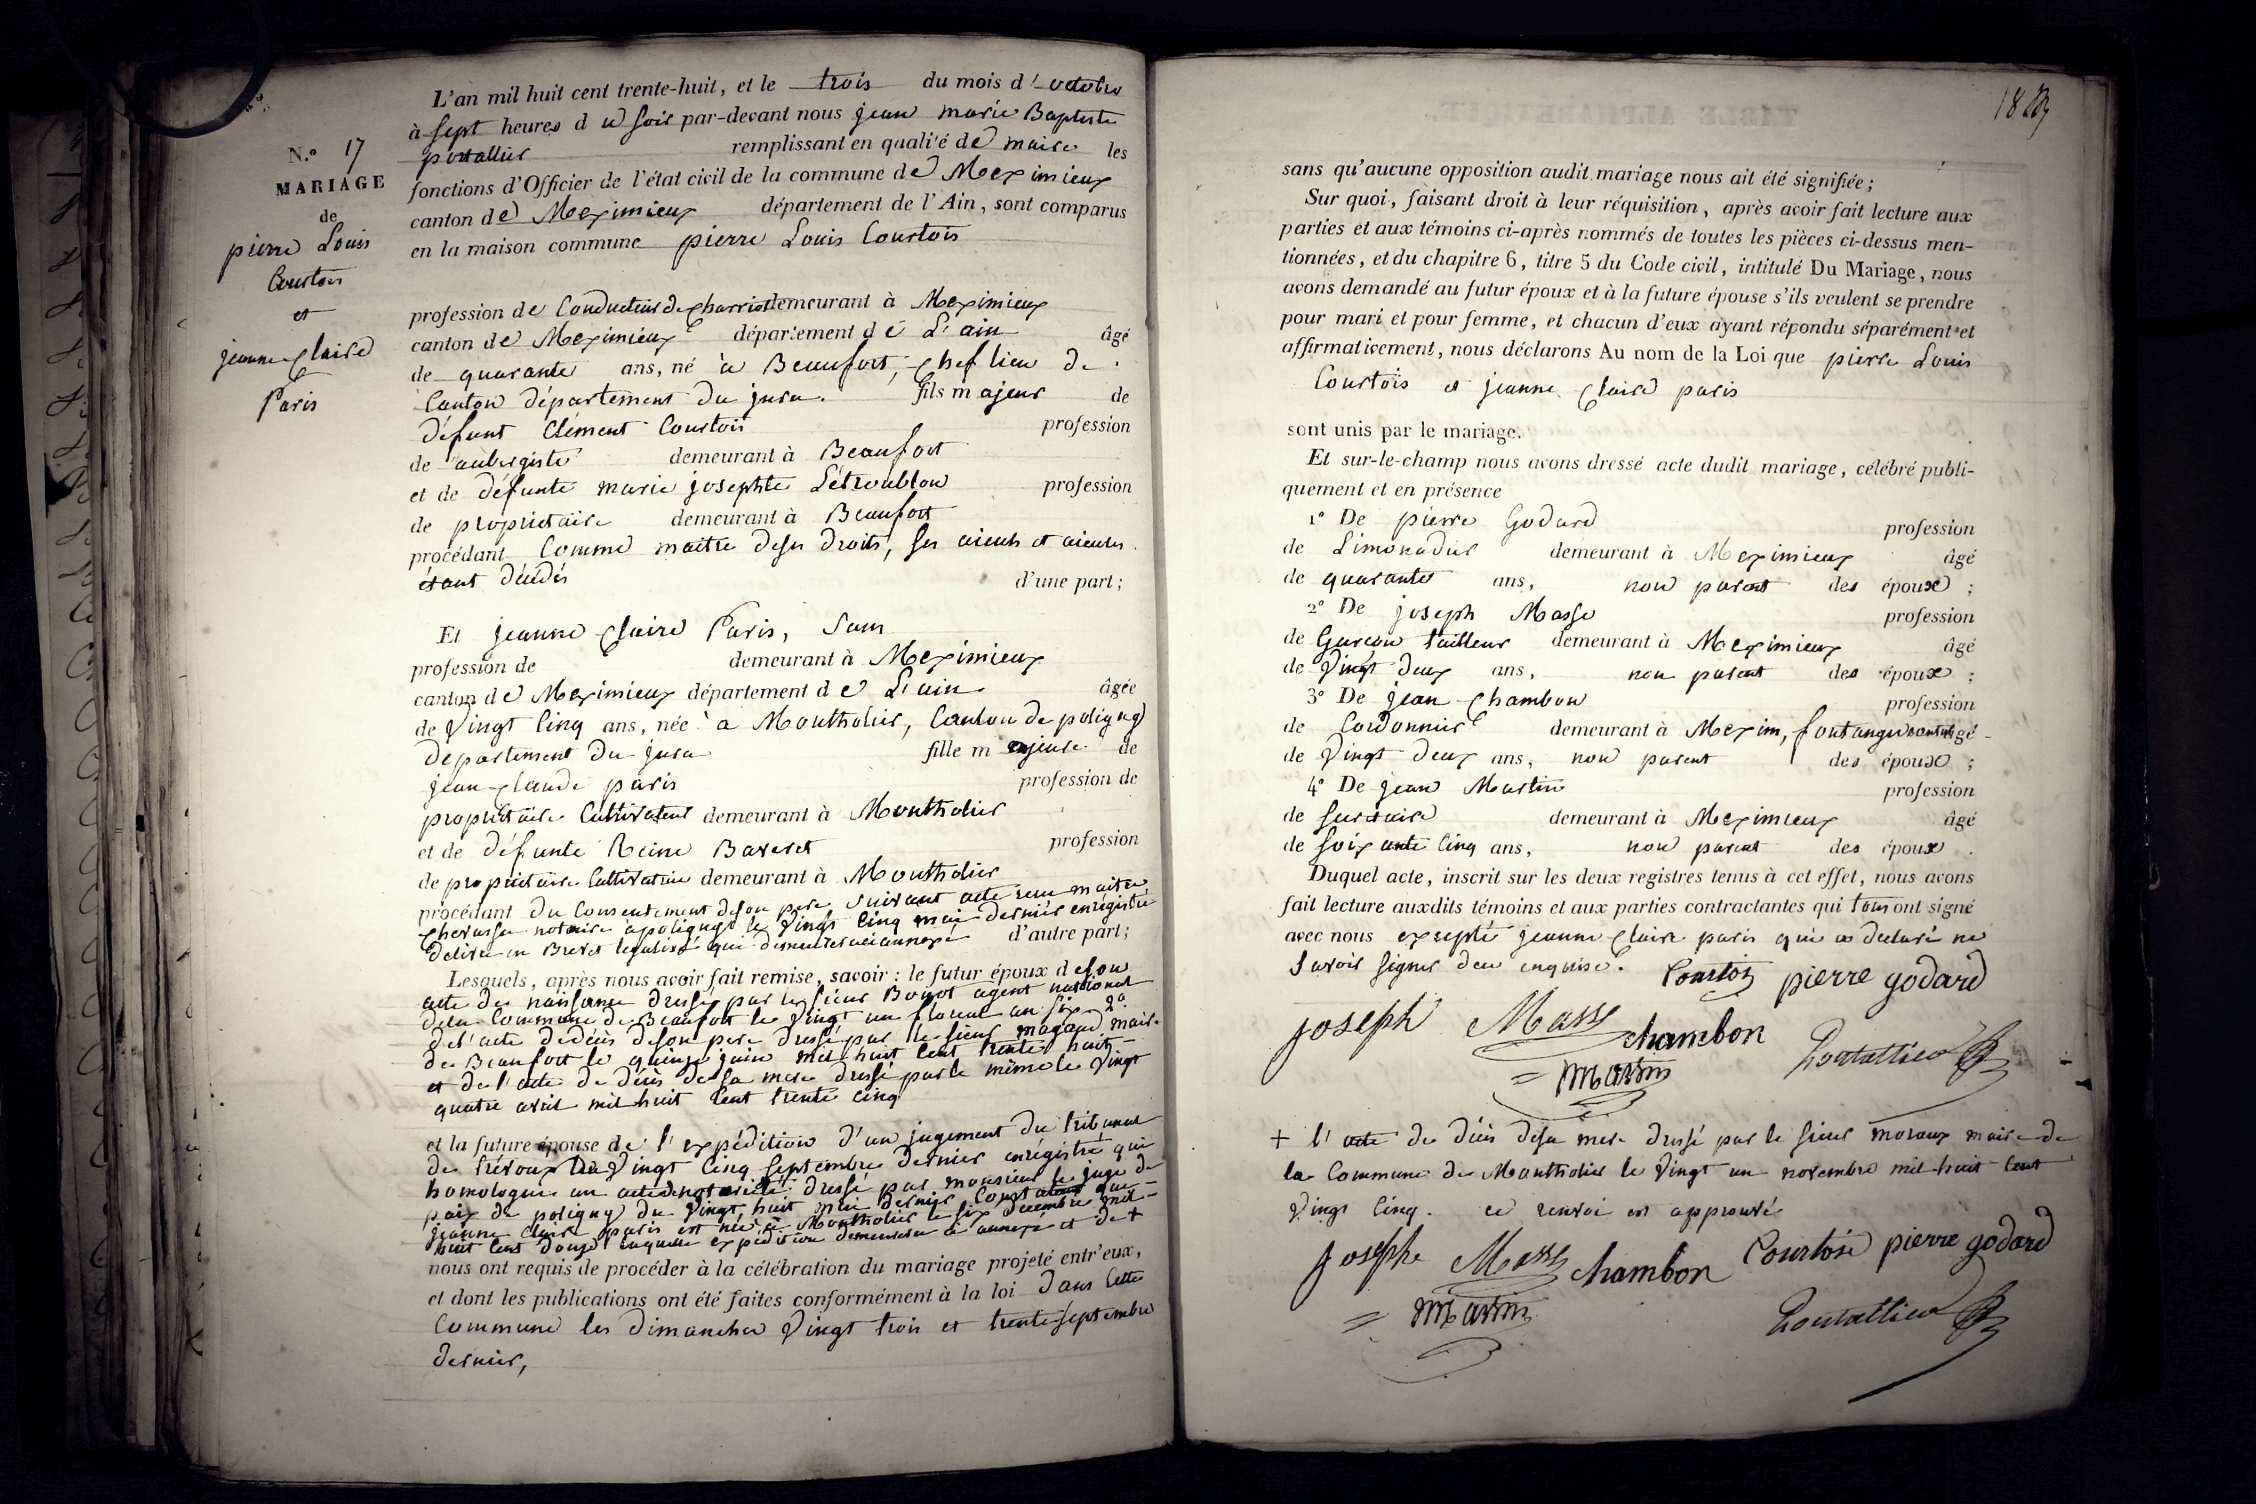 L'an mil huit cent trente-huit, et le trois du mois d'octobre
à sept heures du soir par-devant nous jean marie Baptiste
portallier remplissant en qualité de maire les
fonctions d'Officier de l'état civil de la commune de Meximieux
canton de Meximieux département de l'Ain, sont comparus
en la maison commune pierre Louis Courtois
N.º 17
MARIAGE
de
pierre Louis
Courtois
et
jeanne Claire
Paris
profession de Conducteur de Charriot demeurant à Meximieux
canton de Meximieux département de L'ain âgé
de quarante ans, né à Beaufort, Chef lieu de
Canton département du jura. fils majeur de
défunt Clément Courtois profession
de aubergiste demeurant à Beaufort
et de défunte marie josephte Létroublon profession
de propriétaire demeurant à Beaufort
procédant Comme maitre deses droits, ses aieuls et aieules
étant décédés d'une part;
Et jeanne Claire Paris, Sans
profession de demeurant à Meximieux
canton de Meximieux département de L'ain âgée
de Vingt Cinq ans, née à Montholier, Canton de poligny
département du jura fille majeure de
jean Claude paris profession de
propriétaire Cultivateur demeurant à Montholier
et de défunte Reine Baveret profession
de propriétaire Cultivatrice demeurant à Montholier
procédant du Consentement deson pere suivant acte reçu maitre
notaire à poligny le Vingt Cinq mai dernier enrégistré
délivré en Brevet légalisé qui demeurera ici annexé d'autre part;
Lesquels, après nous avoir fait remise, savoir: le futur époux deson
acte de naissance dressé par le sieur agent national
dela Commune de Beaufort le Vingt un floréal an six 2º
del'acte dedécès deson pere dressé par le sieur maire
de Beaufort le quinze juin mil huit Cent trente huit
et de l'acte de décès de sa mere dressé par le même le Vingt
quatre avril mil huit Cent trente cinq
et la future épouse de l'expédition d'un jugement du tribunal
de trévoux du Vingt Cinq Septembre dernier enrégistré qui
homologue un acte de notoriété dressé par monsieur le juge de
paix de poligny du Vingt huit mai dernier Constatant que
jeanne Claire paris est née à Montholier le six décembre mil
huit Cent douze laquelle expédition demeurera ici annexé et de +
nous ont requis de procéder à la célébration du mariage projeté entr'eux,
et dont les publications ont été faites conformément à la loi dans Cette
Commune les dimanches Vingt trois et trente Septembre
dernier,
sans qu'aucune opposition audit mariage nous ait été signifiée;
Sur quoi, faisant droit à leur réquisition, après avoir fait lecture aux
parties et aux témoins ci-après nommés de toutes les pièces ci-dessus men-
tionnées, et du chapitre 6, titre 5 du Code civil, intitulé Du Mariage, nous
avons demandé au futur époux et à la future épouse s'ils veulent se prendre
pour mari et pour femme, et chacun d'eux ayant répondu séparément et
affirmativement, nous déclarons Au nom de la Loi que pierre Louis
Courtois et jeanne Claire paris
sont unis par le mariage.
Et sur-le-champ nous avons dressé acte dudit mariage, célébré publi-
quement et en présence
1º De pierre Godard profession
de Limonadier demeurant à Meximieux âgé
de quarante ans, non parent des époux;
2º De joseph Masse profession
de Garçon tailleur demeurant à Meximieux âgé
de Vingt deux ans, non parent des époux;
3º De jean Chambon profession
de Cordonnier demeurant à Mexim, âgé
de Vingt deux ans, non parent des époux;
4º De jean Martin profession
de demeurant à Meximieux âgé
de soixante Cinq ans, non parent des époux.
Duquel acte, inscrit sur les deux registres tenus à cet effet, nous avons
fait lecture auxdits témoins et aux parties contractantes qui tous ont signé
avec nous excepté jeanne Claire paris qui a déclaré ne
Savoir signer dece enquise. Courtois pierre godard
joseph Masse chambon
Martin Portallier
+ l'acte de décès desa mere dressé par le sieur moraux maire de
la Commune de Montholier le Vingt un novembre mil huit Cent
Vingt Cinq. ce renvoi est approuvé
joseph Masse chambon Courtois pierre godard
Martin Portallier